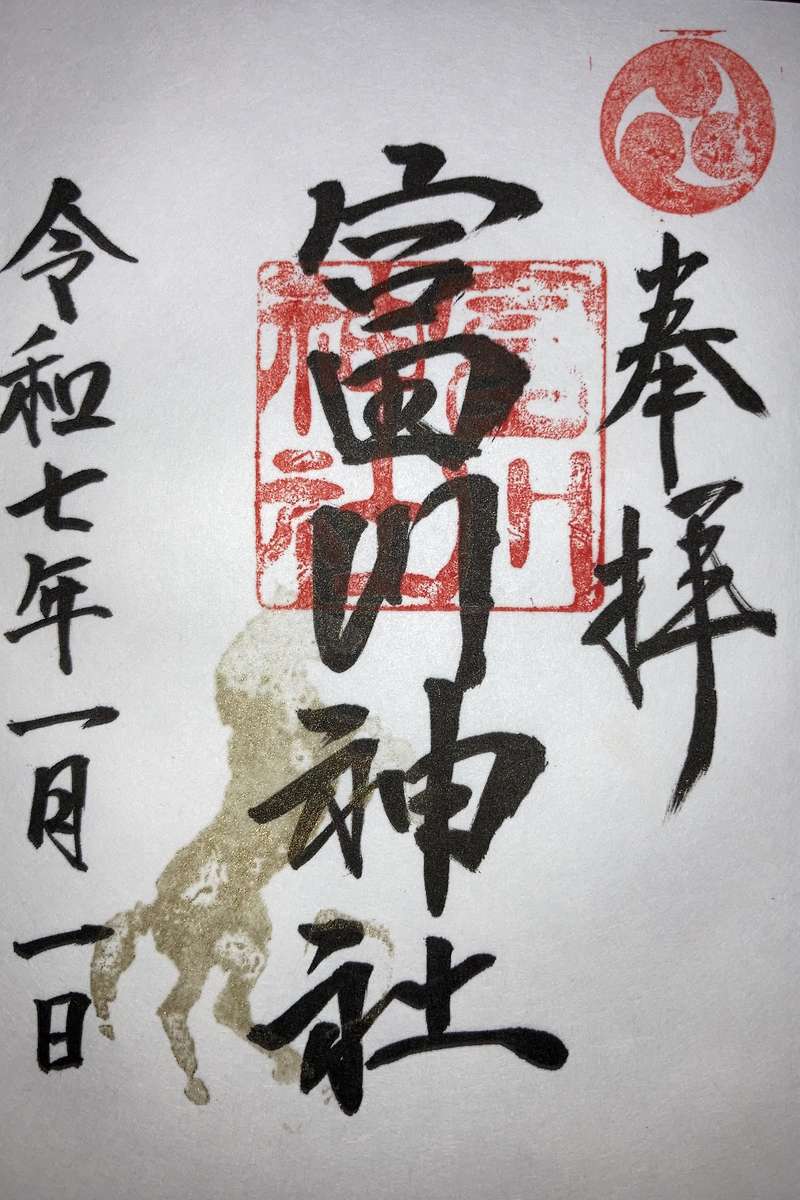 奉拝
富川神社
富川神社
令和七年一月一日